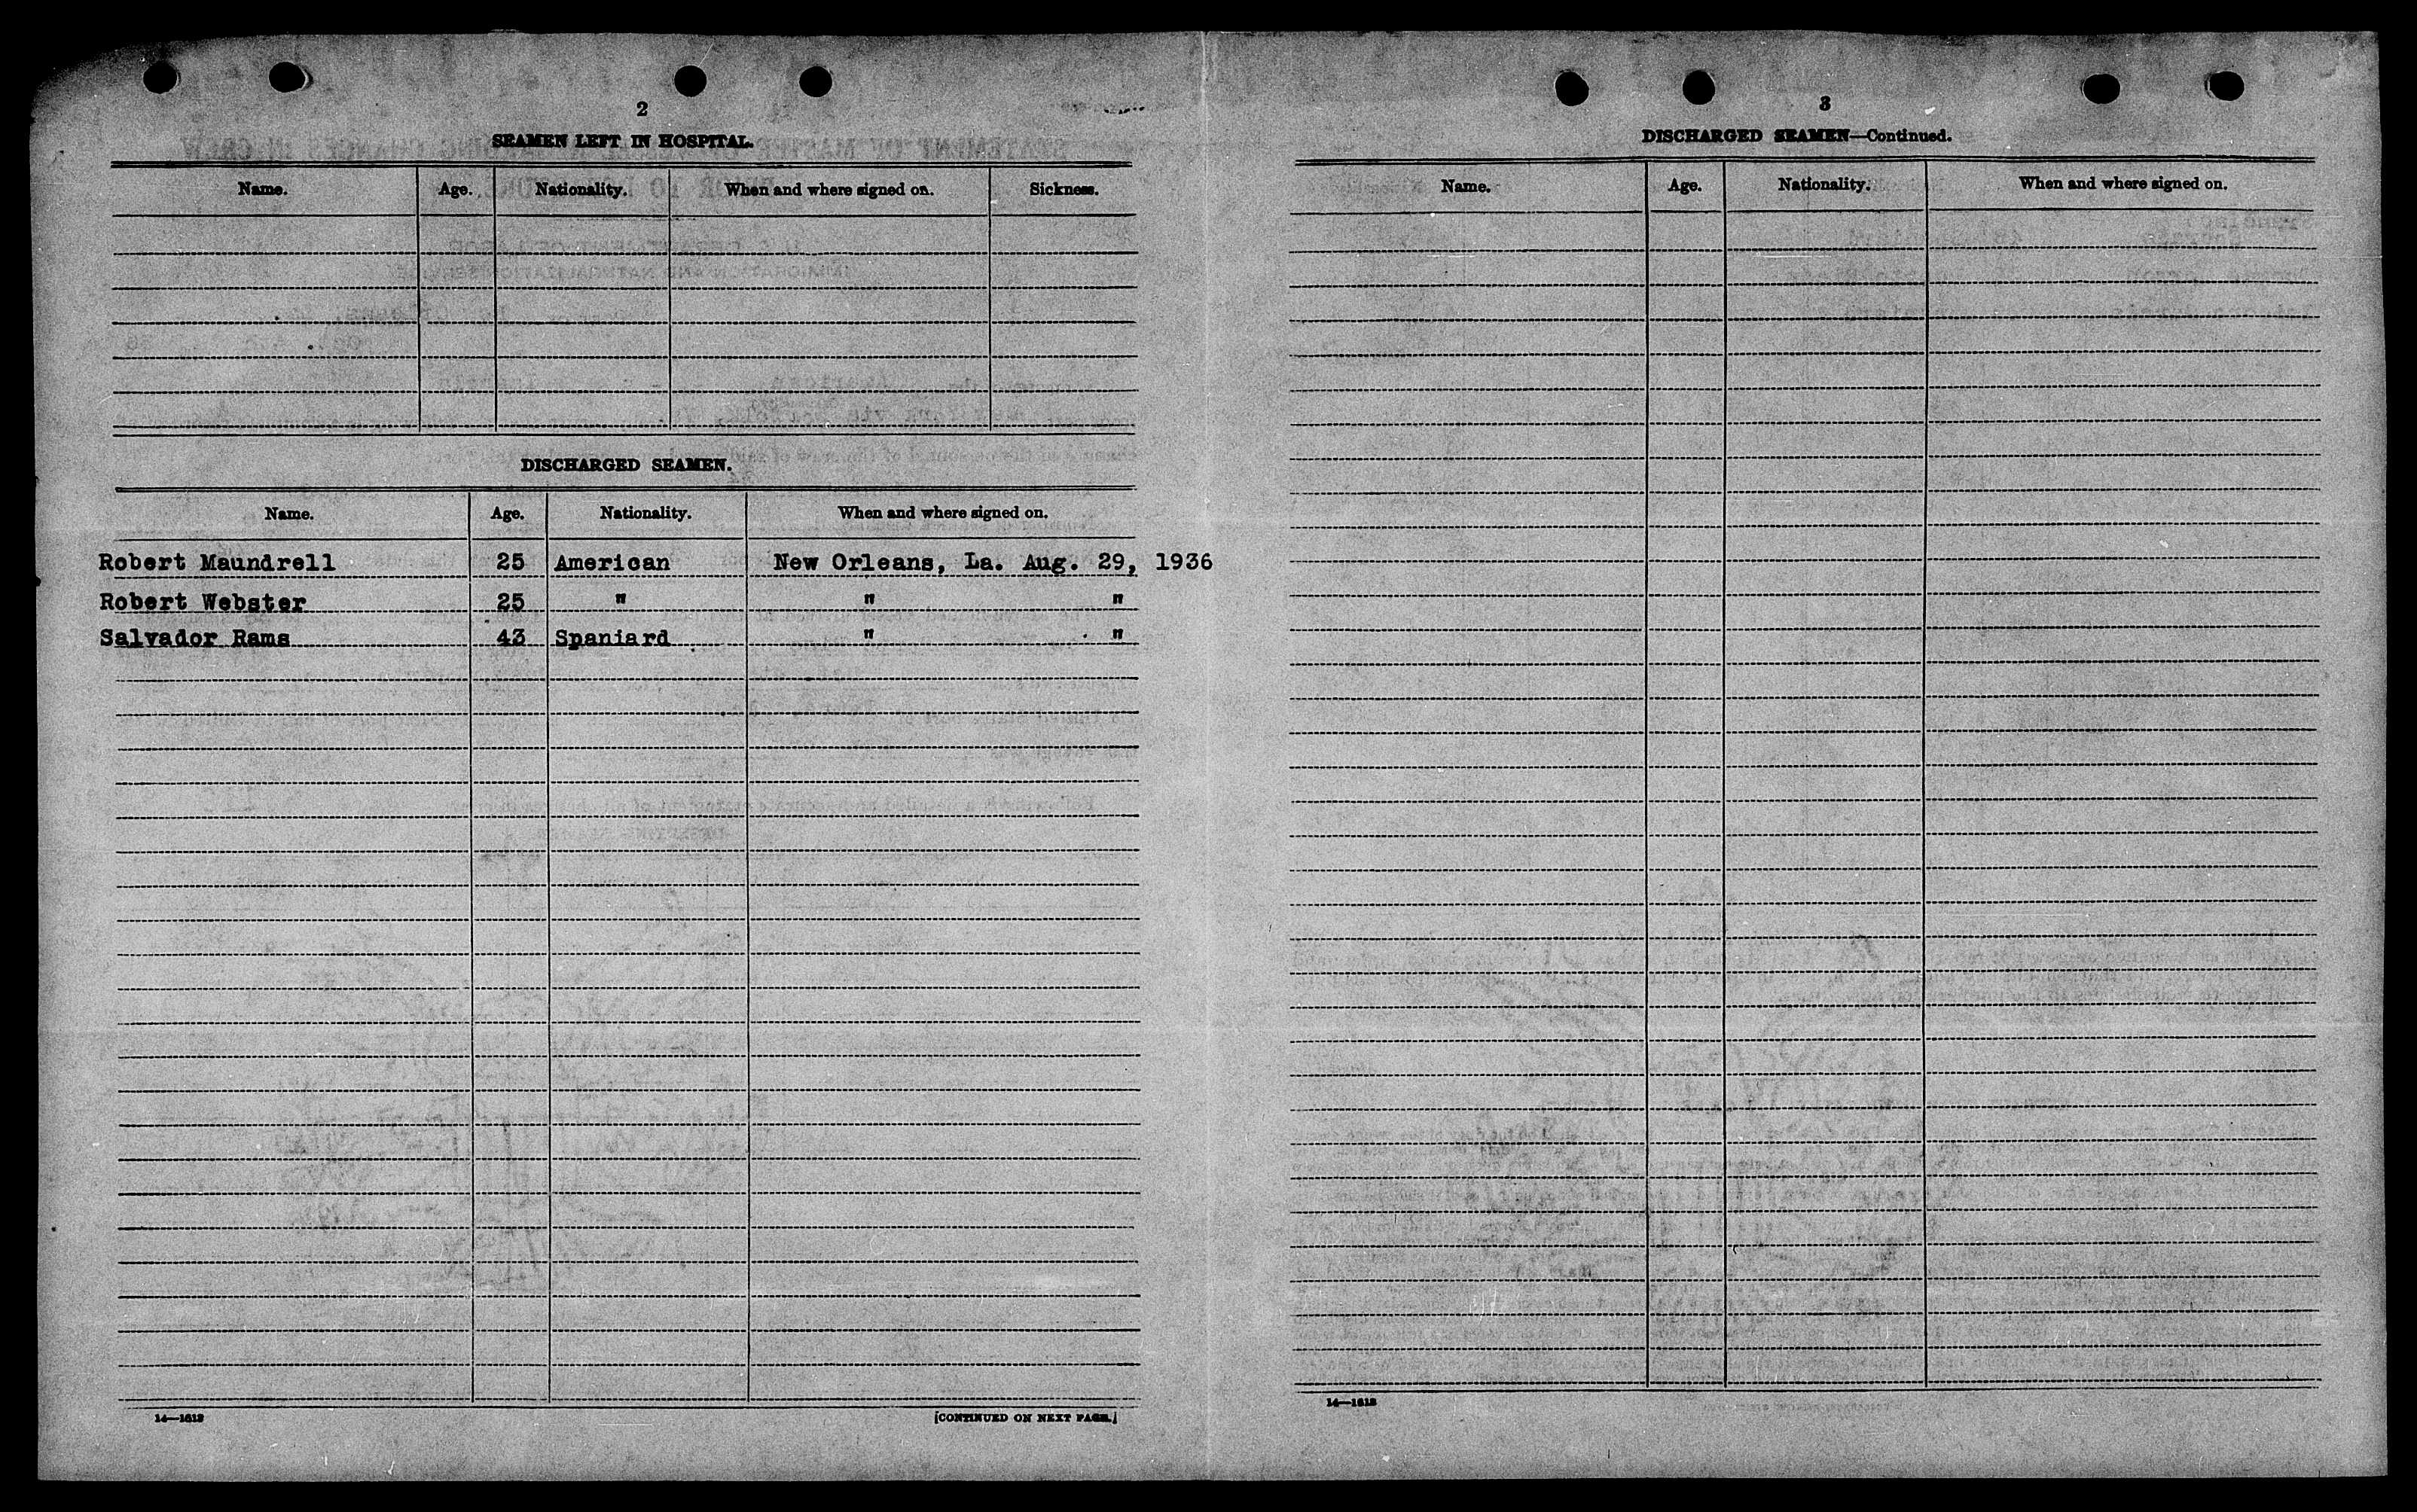 2
SEAMEN LEFT IN HOSPITAL.
Name. Age. Nationality. When and where signed on. Sickness.
DISCHARGED SEAMEN.
Name. Age. Nationality. When and where signed on.
Robert Maundrell 25 American New Orleans, La. Aug. 29, 1936
Robert Webster 25 " " "
Salvador Rams 43 Spaniard " "
14—1612
[CONTINUED ON NEXT PAGE.]
3
DISCHARGED SEAMEN—Continued.
Name. Age. Nationality. When and where signed on.
14—1612